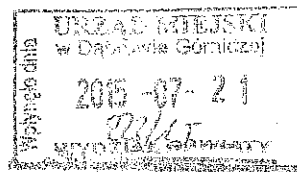 URZĄD MIEJSKI
w Dąbrowie Górniczej
Wpłynęło dnia
2015 -07- 21